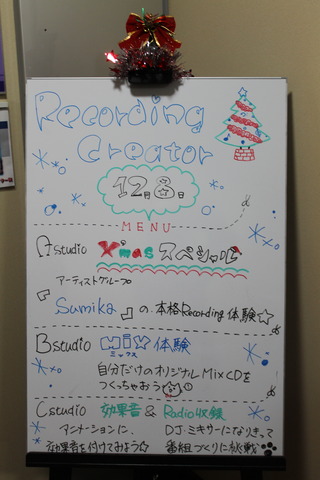 Recording
Creator
12月8日
MENU
Astudio X'mas スペシャル
アーティストグループ
「Sumika」の本格Recording体験☆
Bstudio MIX体験
ミックス
自分だけのオリジナルMixCDを
つくっちゃおう
Cstudio 効果音 & Radio収録
アニメーションに、
効果音を付けてみよう☆
DJ・ミキサーになりきって
番組づくりに挑戦